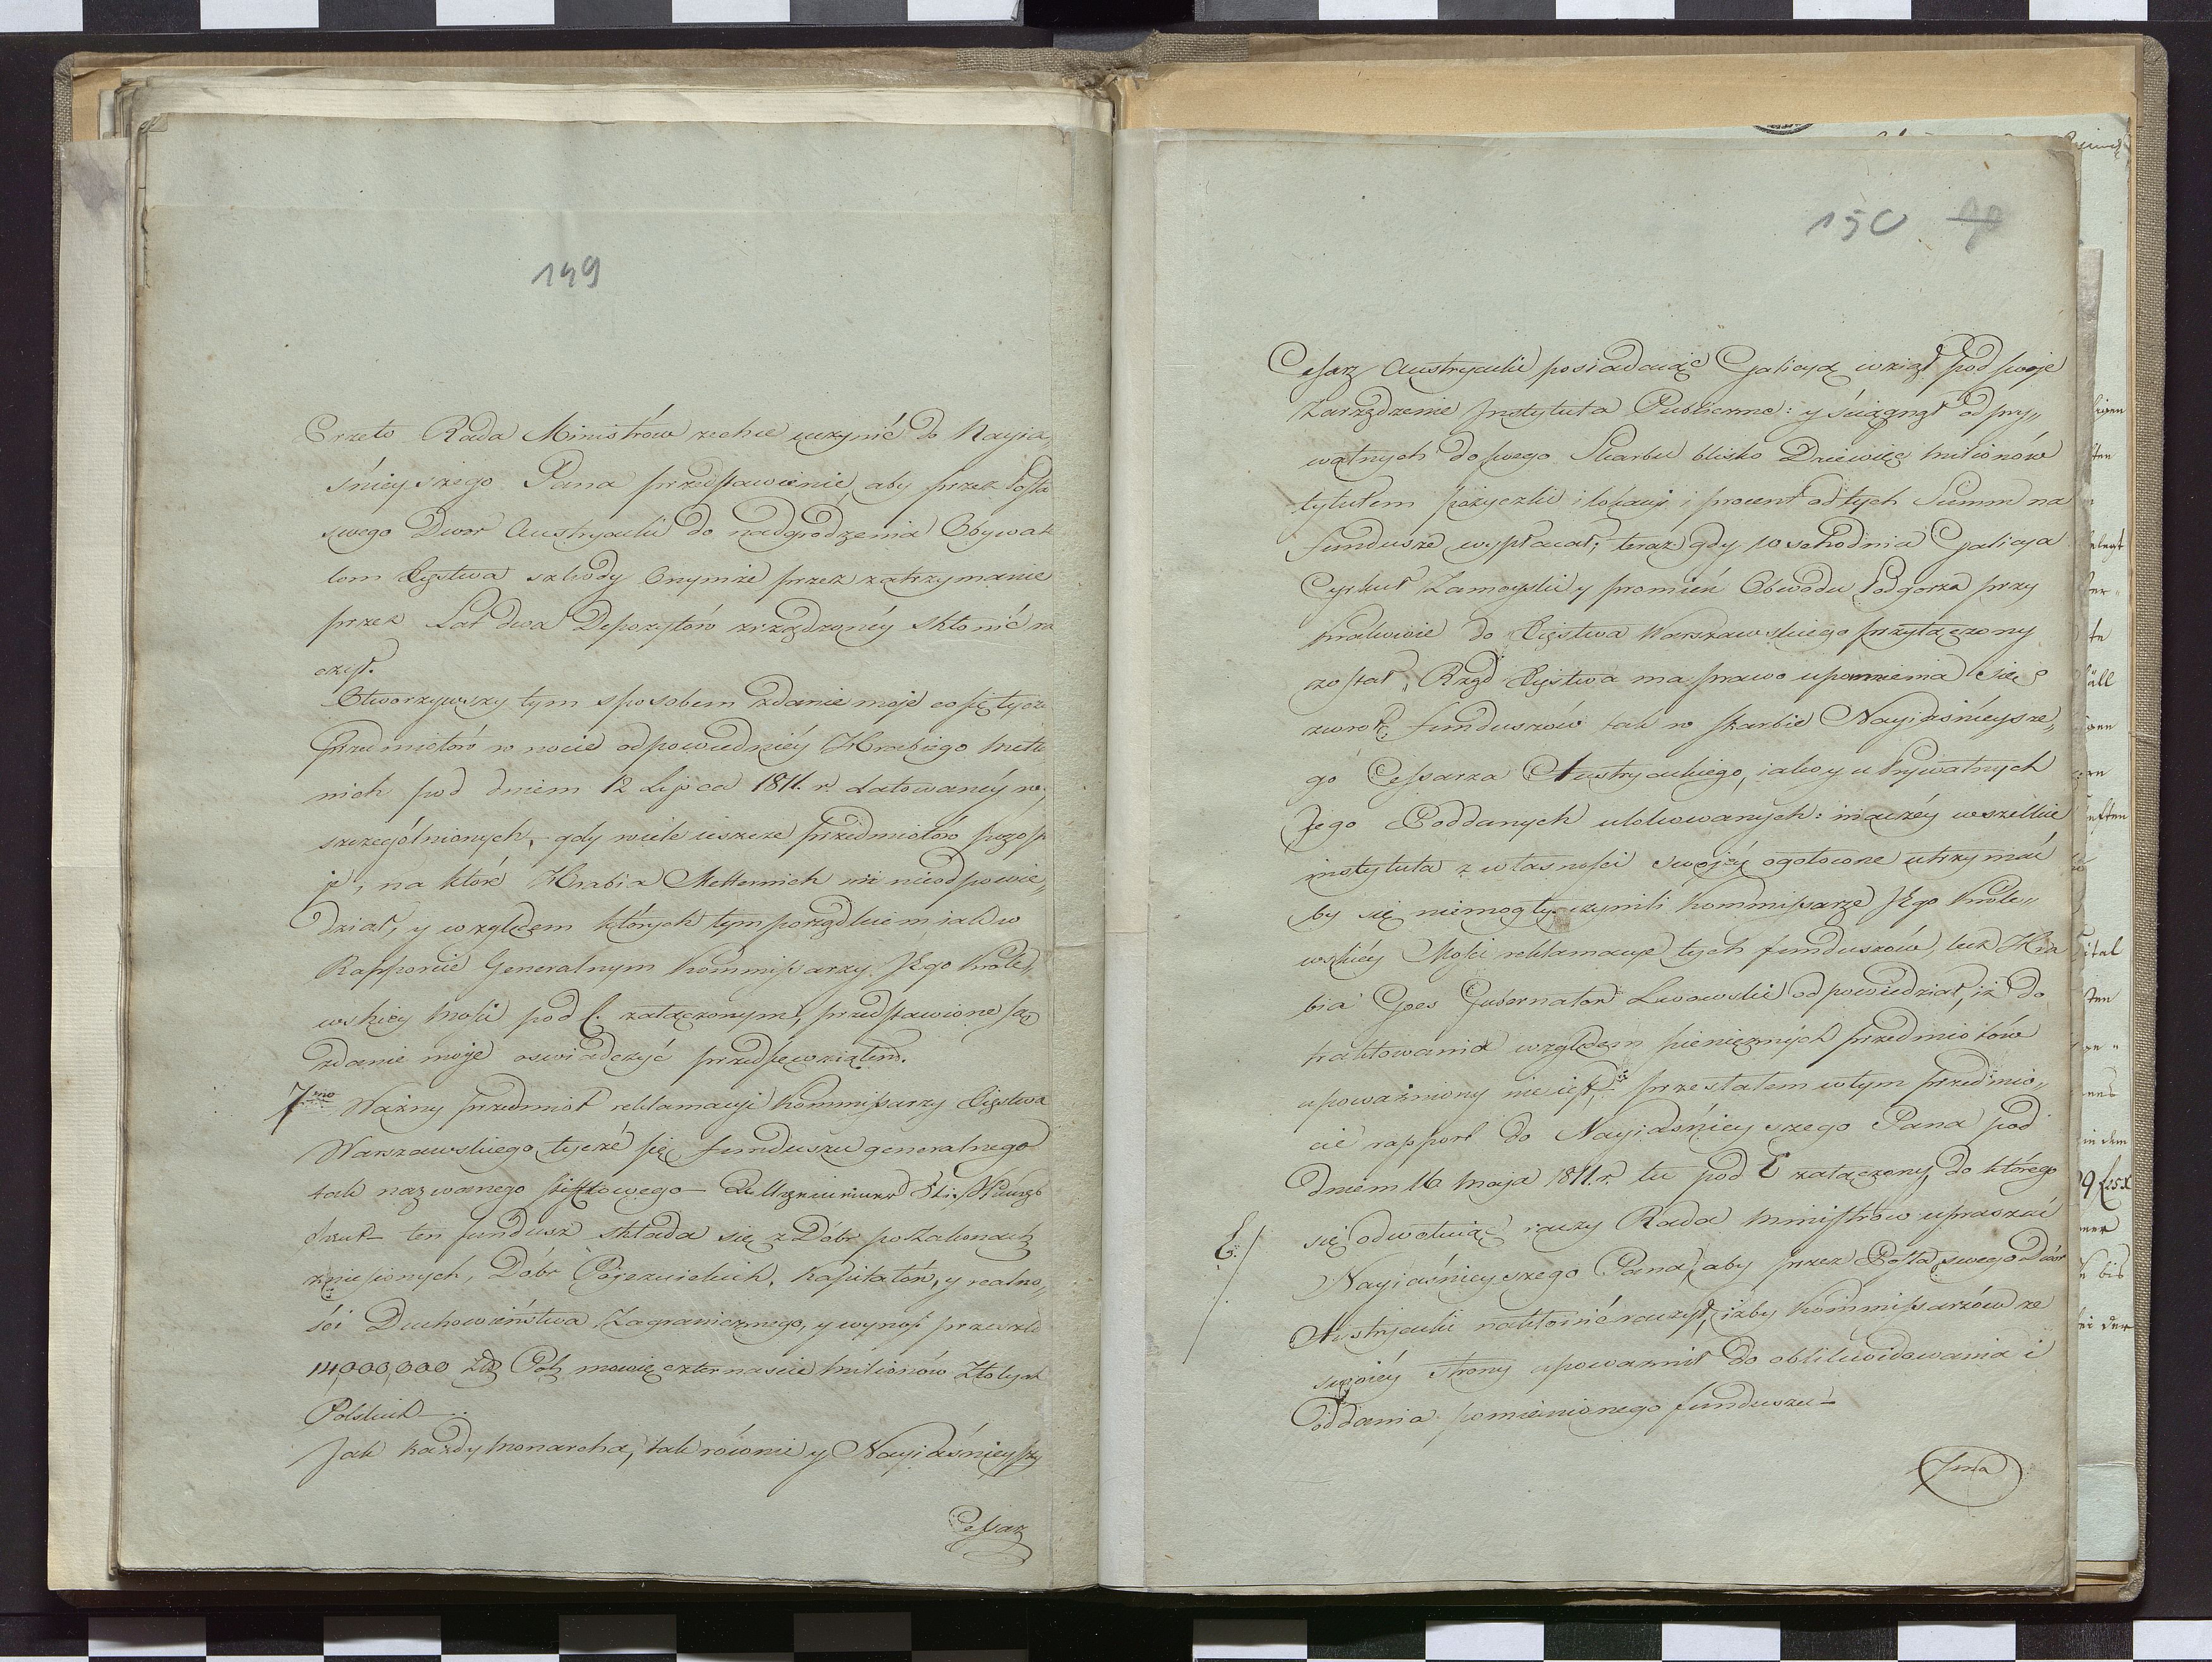 149
Przeto Rada Ministrów zechce uczynić do Nayja„
śnieyszego Pana przedstawienie, aby przez Posła
swego Dwor Austryacki do nadgrodzenia Obywate
lom Xięstwa szkody Onymże przez zatrzymanie
przez Lat dwa Depozytów zrządzonéy skłonić ra
czył.
Otworzywszy tym sposobem zdanie moje co się tycze
Przedmiotów w nocie odpowiedniéy Hrabiego Mette
nich pod dniem 12 Lipca 1811. r. datowanéy wy
szczególnionych, gdy wiele ieszcze przedmiotów
je, na które Hrabia Metternich nie nieodpowie„
dział, y względem których tym porządkiem iak w
Rapporcie Generalnym Kommissarzy JEgo Króle„
wskiey Mości pod C. załączonym, przedstawione są
zdanie moje oswiadczyć przedsięwziąłem.
7mo Ważny przedmiot reklamacyi Kommissarzy Xięstwa
Warszawskiego tycze się funduszu generalnego
tak nazwanego sztyftowego
ten fundusz składa się z Dóbr po Zakonach
zniesionych, Dóbr Pojezuickich, Kapitałów, y realno„
ści Duchowieństwa Zagranicznego, y wynosi przeszło
14,000,000 Złł Pol mowię czternascie Milionów Złotych
Polskich.
Jak każdy Monarcha, tak równie y Nayiaśnieyszy
Cessarz
150
Cesarz Austryacki posiadaiąc Galicyą wziął pod swoje
Zarządzenie Instytuta Publiczne: y ściągnął od pry„
watnych do swego Skarbu blisko Dziewięć Milionów
tytułem pożyczki i lokacyi i procent od tych Summ na
fundusze wypłacał; teraz gdy wschodnia Galicya
Cyrkuł Zamoyski y promień Obwodu Podgorza przy
Krakowie do Xięstwa Warszawskiego przyłączony
został, Rząd Xięstwa ma prawo upomnienia się o
zwrot funduszów tak w skarbie Nayiaśnieysze„
go Cessarza Austryackiego, iako y u Prywatnych
Jego Poddanych ulokowanych: inaczéy wszelkie
instytuta z własności swojéy ogołocone utrzymać
by się niemogły czynili Kommissarze JEgo Króle„
wskiéy Mości reklamacye tych funduszów, lecz Hra
bia Goes Gubernator Lwowski odpowiedział, iż do
traktowania względem pieniężnych przedmiotów
upoważniony nie iest, przestałem w tym przedmio„
cie rapport do Nayiaśnieyszego Pana pod
Dniem 16 Maja 1811. r. tu pod E załączony, do którego
E./ się odwołuiąc raczy Rada Ministrów upraszać
Nayiaśnieyszego Pana, aby przez Posła swego Dwór
Austryacki nakłonić raczył, iżby Kommissarzów ze
swoiéy strony upoważnił do oblikwidowania i
Oddania pomienionego funduszu